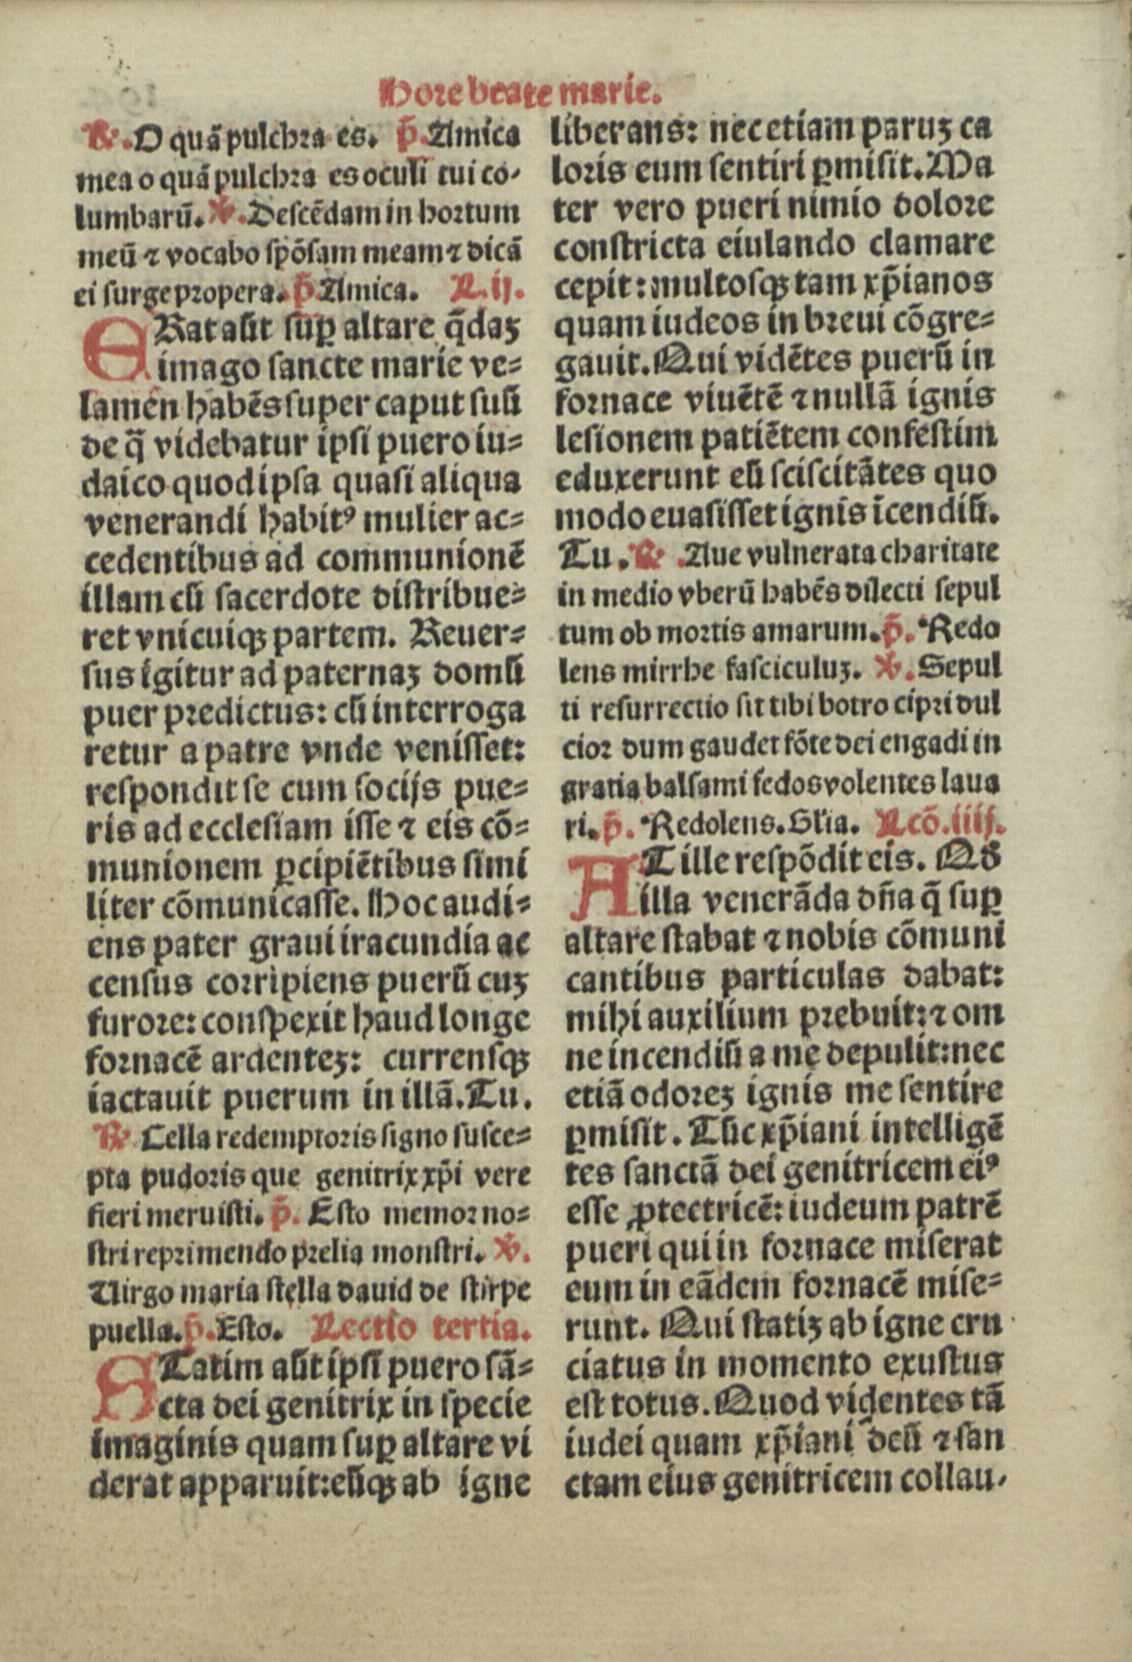 Hore beate marie.
℟. O quā pulchra es. p̄. Amica
mea o quā pulchra es oculi tui co-
lumbarū. ℣. Descēdam in hortum
meū ⁊ vocabo spōsam meam ⁊ dicā
ei surge propera. p̄. Amica. L. ij.
ERat aūt suꝑ altare q̄daꝫ
imago sancte marie ve=
lamen habēs super caput suū
de q̄ videbatur ipsi puero iu=
daico quod ipsa quasi aliqua
venerandi habitꝰ mulier ac=
cedentibus ad communionē
illam cū sacerdote distribue=
ret vnicuiqꝫ partem. Reuer=
sus igitur ad paternaꝫ domū
puer predictus: cū interroga
retur a patre vnde venisset:
respondit se cum socijs pue=
ris ad ecclesiam isse ⁊ eis cō=
munionem ꝑcipiētibus simi
liter cōmunicasse. Hoc audi=
ens pater graui iracundia ac
census corripiens puerū cuꝫ
furore: conspexit haud longe
fornacē ardenteꝫ: currensqꝫ
iactauit puerum in illā. Tu.
℟. Cella redemptoris signo susce=
pta pudoris que genitrix xp̄i vere
fieri meruisti. p̄. Esto memor no=
stri reprimendo prelia monstri. ℣.
Uirgo maria stella dauid de stirpe
puella. p̄. Esto. Lectio tertia.
STatim aūt ipsi puero sā=
cta dei genitrix in specie
imaginis quam suꝑ altare vi
derat apparuit: eūqꝫ ab igne
liberans: nec etiam paruꝫ ca
loris eum sentiri ꝑmisit. Ma
ter vero pueri nimio dolore
constricta eiulando clamare
cepit: multosqꝫ tam xp̄ianos
quam iudeos in breui cōgre=
gauit. Qui vidētes puerū in
fornace viuētē ⁊ nullā ignis
lesionem patiētem confestim
eduxerunt eū sciscitātes quo
modo euasisset ignis īcendiū.
Tu. ℟. Aue vulnerata charitate
in medio vberū habēs dilecti sepul
tum ob mortis amarum. p̄. Redo
lens mirrhe fasciculuꝫ. ℣. Sepul
ti resurrectio sit tibi botro cipri dul
cior dum gaudet fōte dei engadi in
gratia balsami fedos volentes laua
ri. p̄. Redolens. Glīa. Lcō. iiij.
AT ille respōdit eis. Qd̄
illa venerāda dn̄a q̄ suꝑ
altare stabat ⁊ nobis cōmuni
cantibus particulas dabat:
mihi auxilium prebuit: ⁊ om
ne incendiū a me depulit: nec
etiā odoreꝫ ignis me sentire
ꝑmisit. Tūc xp̄iani intelligē
tes sanctā dei genitricem eiꝰ
esse ꝓtectricē: iudeum patrē
pueri qui in fornace miserat
eum in eādem fornacē mise=
runt. Qui statiꝫ ab igne cru
ciatus in momento exustus
est totus. Quod videntes tā
iudei quam xp̄iani deū ⁊ san
ctam eius genitricem collau-